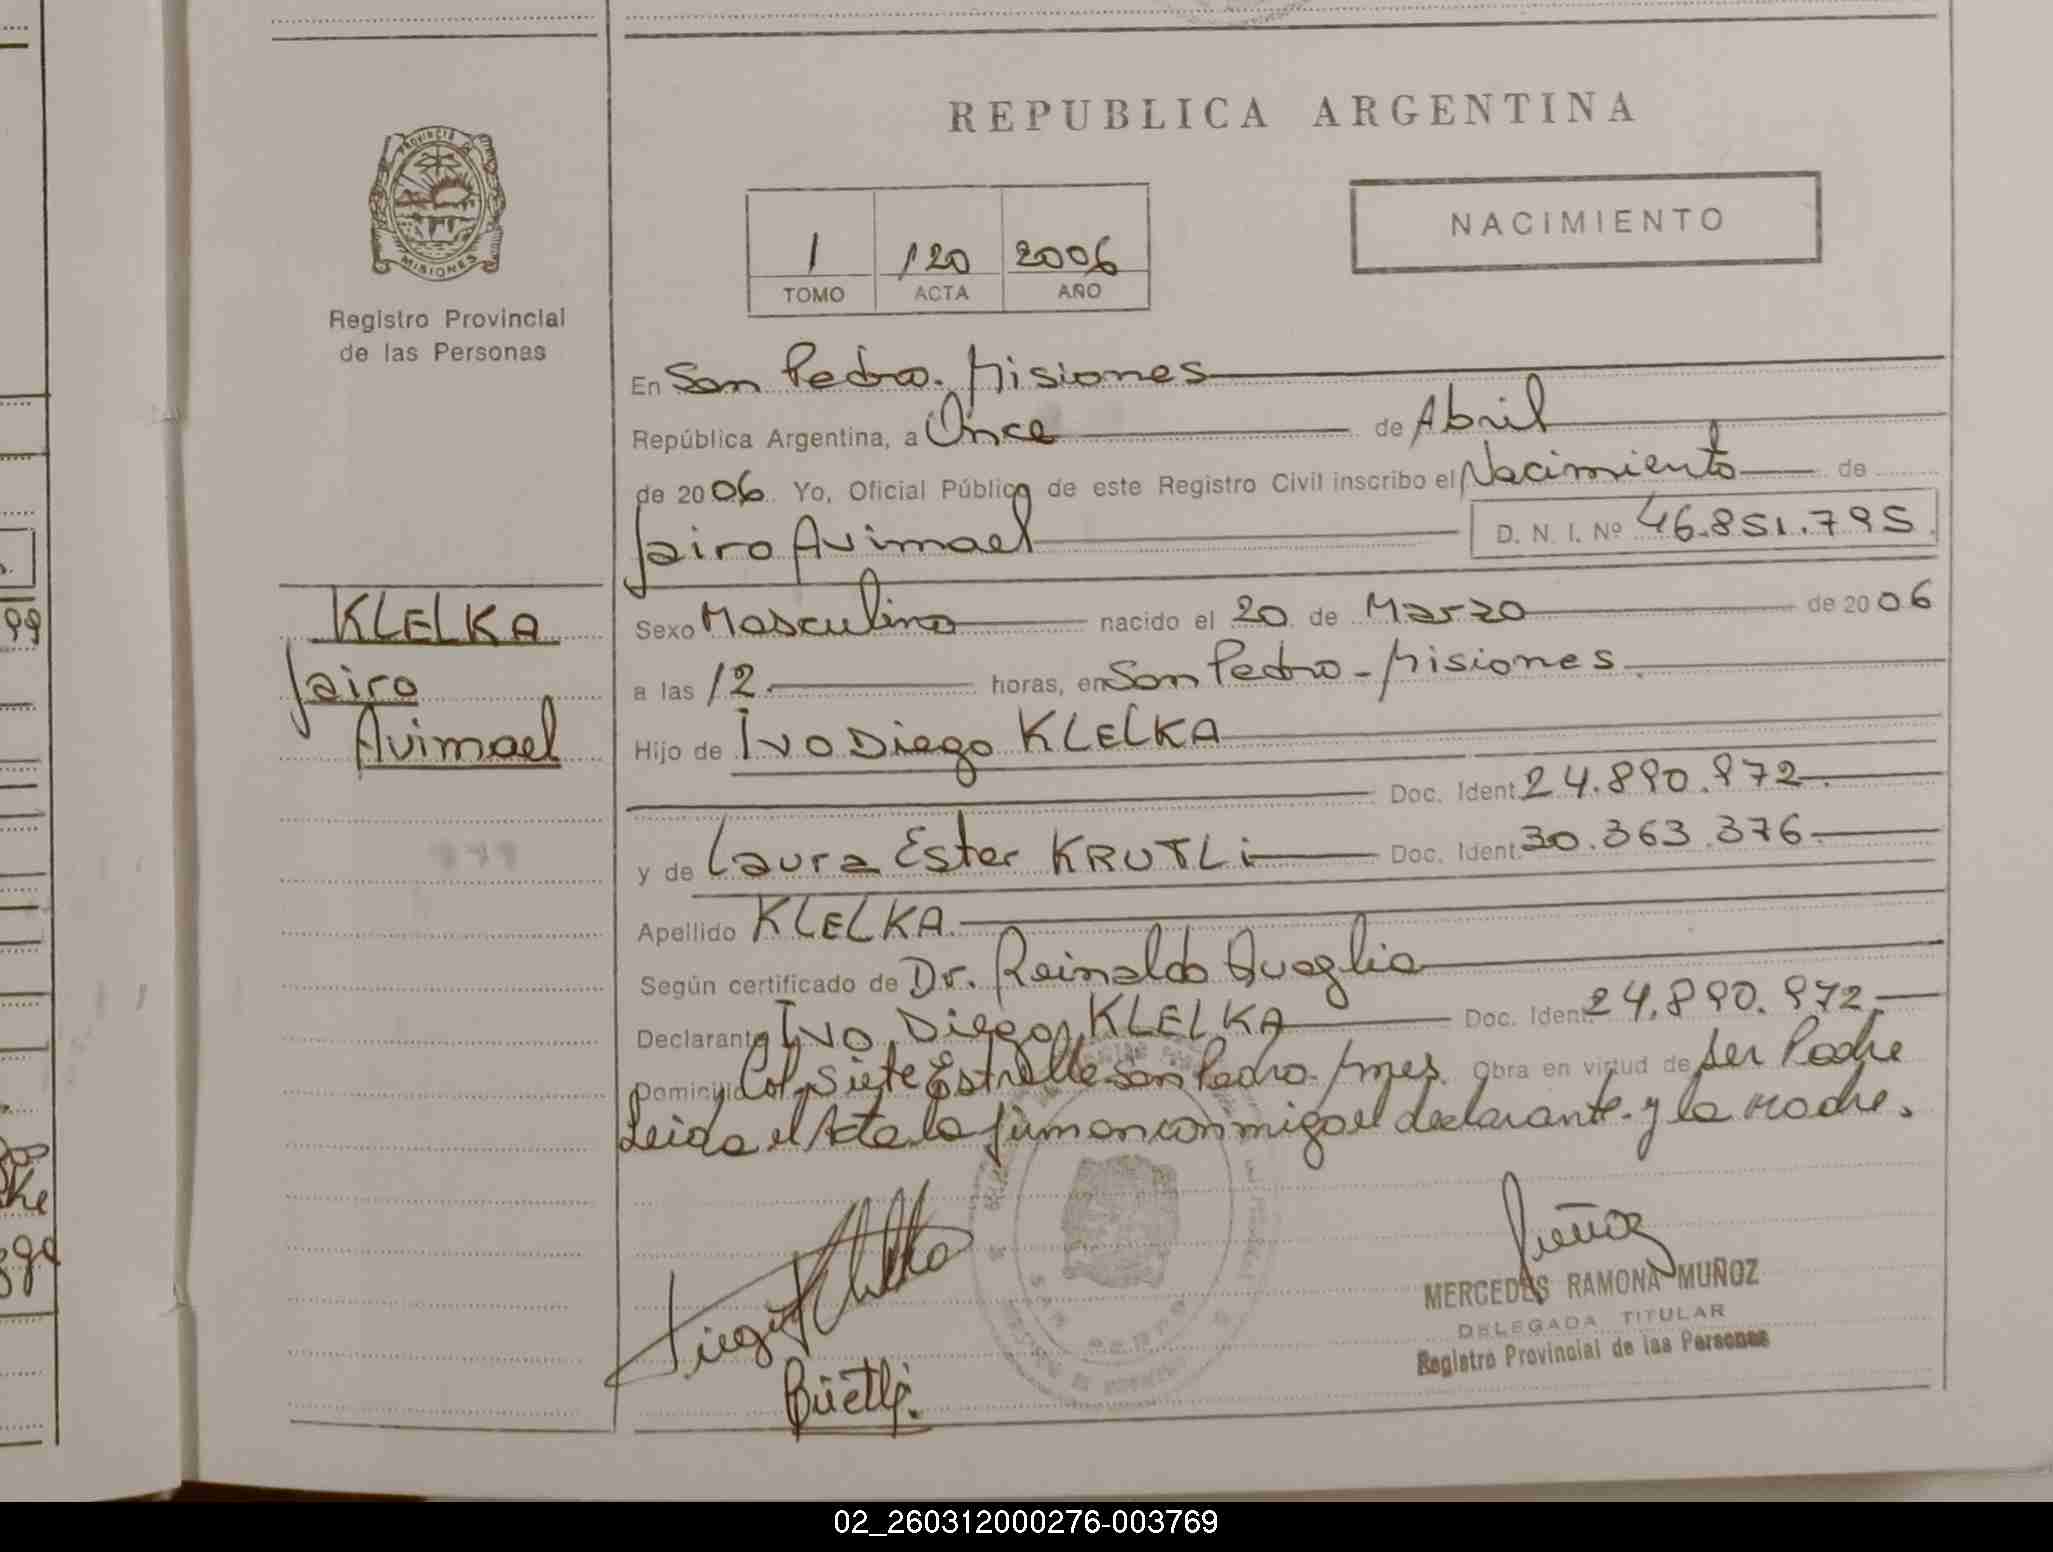 REPUBLICA ARGENTINA
NACIMIENTO
1 120 2006
TOMO ACTA AÑO
PROVINCIA DE
MISIONES
Registro Provincial
de las Personas
KLELKA
Jairo
Avimael
En San Pedro. Misiones
República Argentina, a Once de Abril
de 2006 Yo, Oficial Público de este Registro Civil inscribo el Nacimiento de
Jairo Avimael D. N. I. Nº 46.851.795
Sexo Masculino nacido el 20 de Marzo de 2006
a las 12 horas, en San Pedro - Misiones.
Hijo de Ivo Diego KLELKA
Doc. Ident. 24.890.972
y de Laura Ester KRUTLi Doc. Ident. 30.363.376
Apellido KLELKA
Según certificado de Dr. Reinaldo Quaglia
Declarante Ivo Diego KLELKA Doc. Ident. 24.890.972
Domicilio Col. Siete Estrella San Pedro. Mnes. Obra en virtud de ser Padre
Leida el Acta la firman conmigo el declarante y la madre.
MERCEDES RAMONA MUÑOZ
DELEGADA TITULAR
Registro Provincial de las Personas
SAN PEDRO
02_260312000276-003769